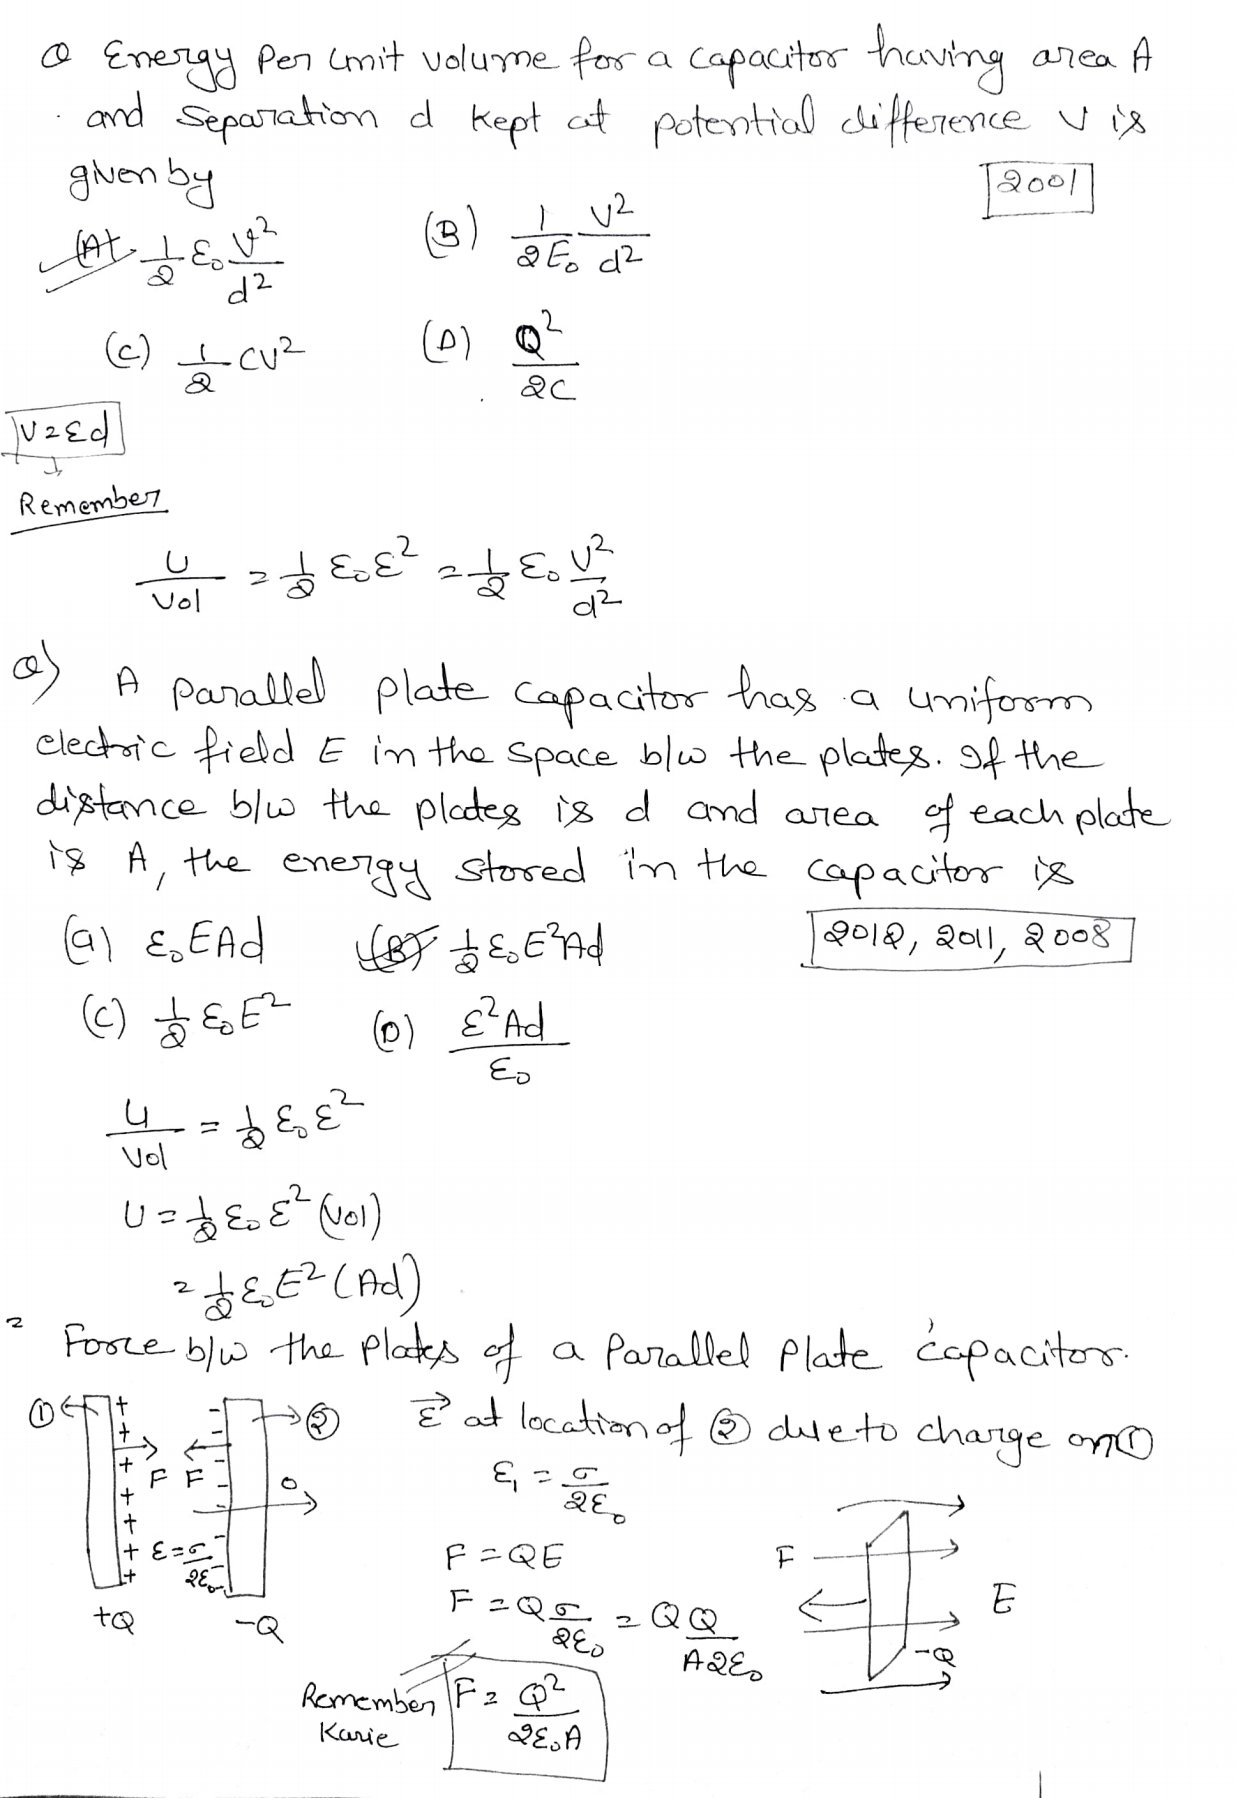 Q Energy Per Unit volume for a capacitor having area A
and Separation d kept at potential difference V is
given by
2001
(A) 1/2 ε₀ V²/d² (B) 1/2E₀ V²/d²
(C) 1/2 CV² (D) Q²/2C
V=Ed
Remember
U/Vol = 1/2 ε₀ε² = 1/2 ε₀ V²/d²
Q) A parallel plate capacitor has a uniform
electric field E in the space b/w the plates. If the
distance b/w the plates is d and area of each plate
is A, the energy stored in the capacitor is
(a) ε₀EAd (B) 1/2 ε₀E²Ad 2012, 2011, 2008
(C) 1/2 ε₀E² (D) ε²Ad/ε₀
U/Vol = 1/2 ε₀ε²
U = 1/2 ε₀ε² (Vol)
= 1/2 ε₀E² (Ad)
= Force b/w the Plates of a Parallel Plate capacitor.
① + + + + + + + F F - - - - - - ② 0
ε = σ/2ε₀
+Q -Q
ε⃗ at location of ② due to charge on ①
ε₁ = σ/2ε₀
F = QE
F = Q σ/2ε₀ = Q Q/A2ε₀
F E -Q
Remember Karie F = Q²/2ε₀A